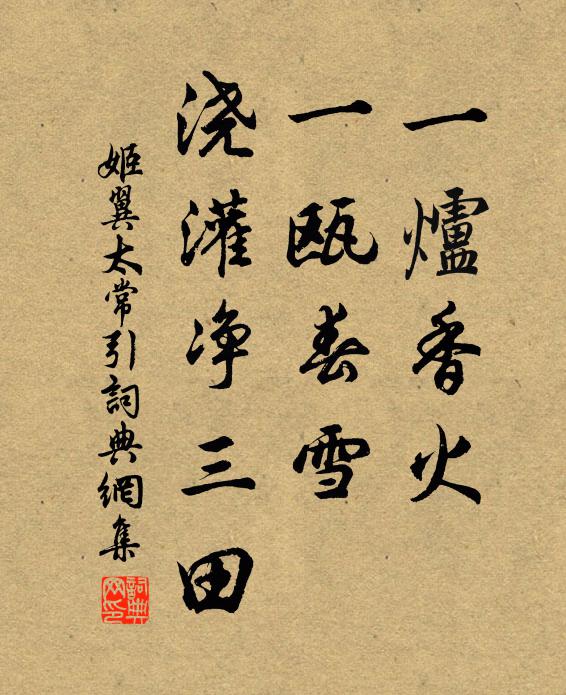 一爐香火
一瓯春雪
浇灌净三田
姬翼太常引詞典網集
詞典网印